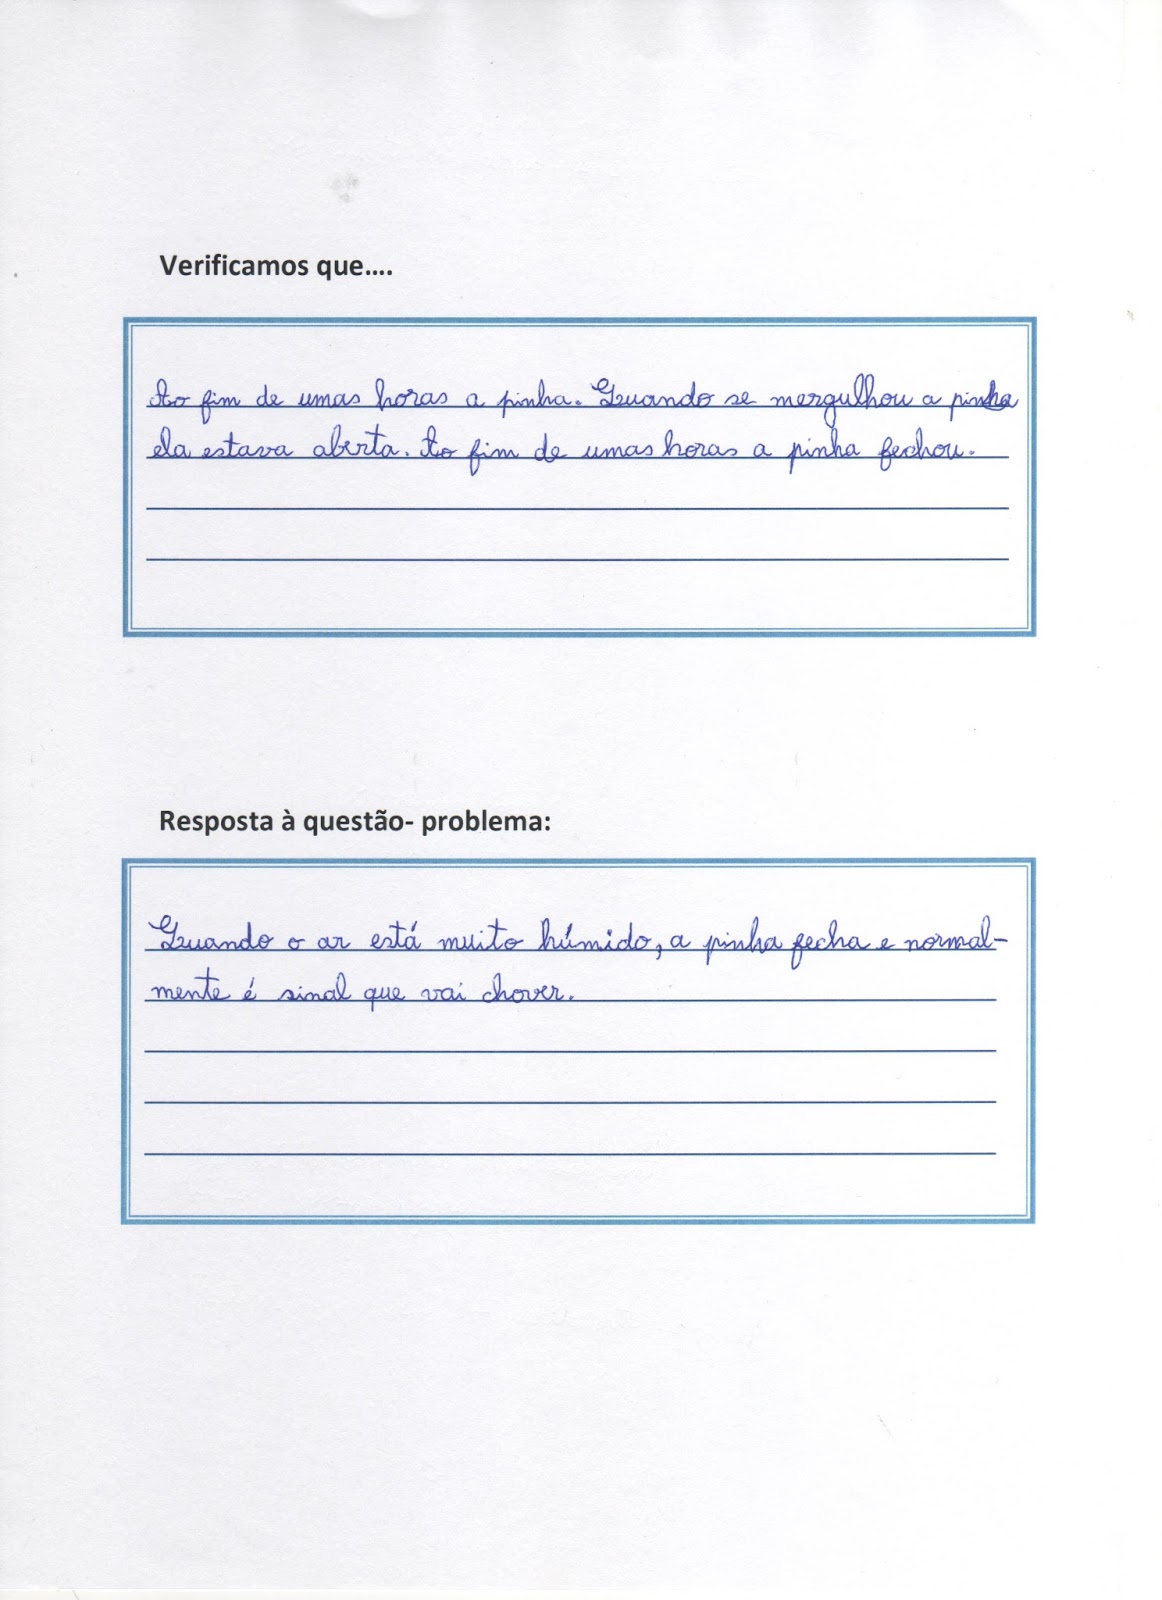 Verificamos que....
Ao fim de umas horas a pinha. Quando se mergulhou a pinha
ela estava aberta. Ao fim de umas horas a pinha fechou.
Resposta à questão- problema:
Quando o ar está muito húmido, a pinha fecha e normal-
mente é sinal que vai chover.